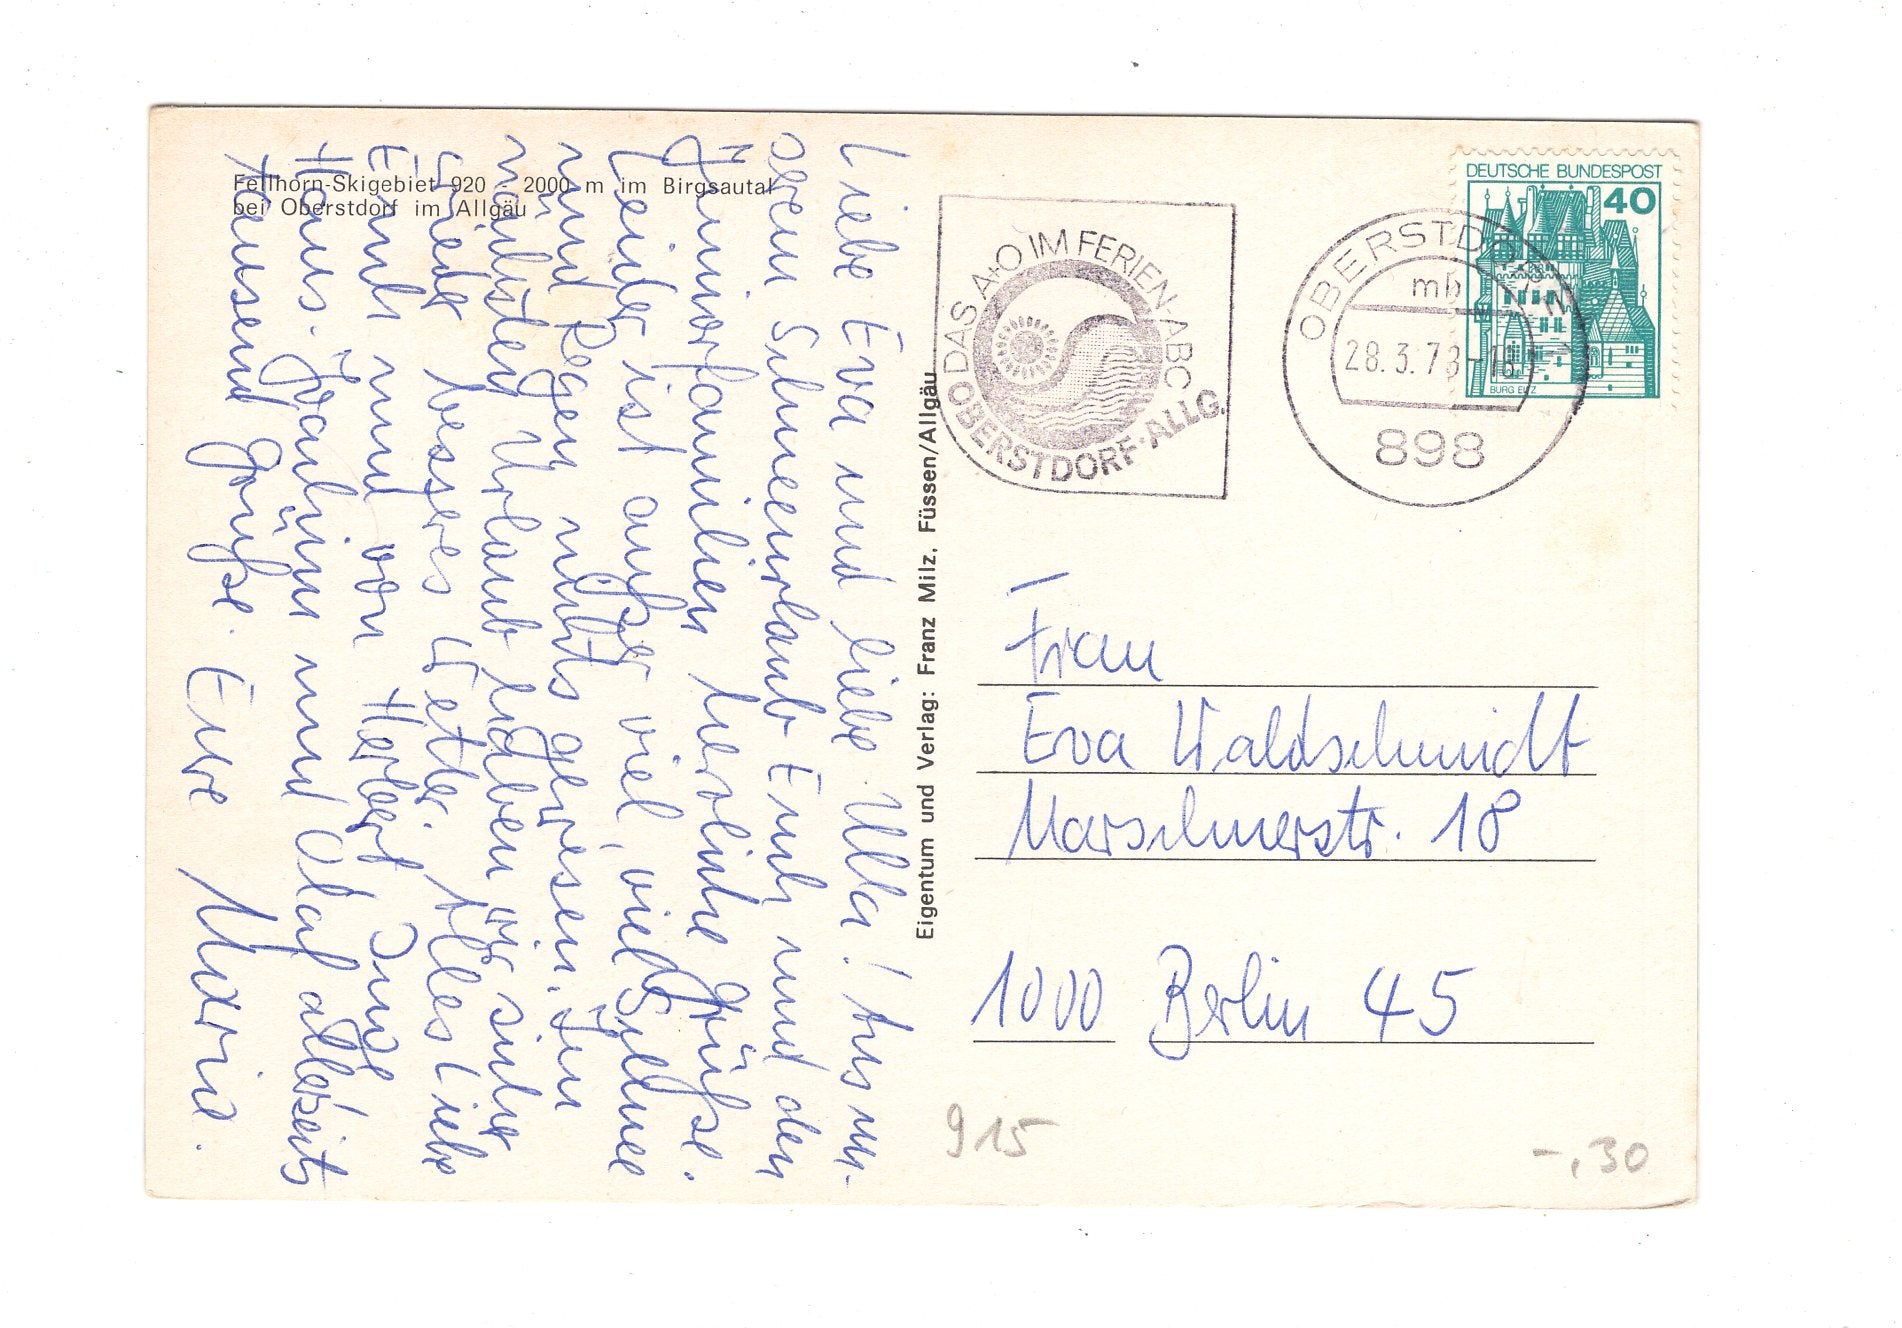 Fellhorn-Skigebiet 920 - 2000 m im Birgsautal
bei Oberstdorf im Allgäu
Liebe Eva und liebe Ulla! Aus un-
serem Schneeurlaub Euch und den
Juniorfamilien herzliche Grüße.
Leider ist außer viel, viel Schnee
und Regen nichts gewesen. Den
nächsten Urlaub haben wir sicher
wieder besseres Wetter. Alles Liebe
Euch nun von Herbert,
Haus. Joachim und Olaf allerseits
tausend Grüße. Eure
Eigentum und Verlag: Franz Milz, Füssen/Allgäu
DAS A+O IM FERIEN-ABC
OBERSTDORF·ALLG.
OBERSTDORF
mb
28.3.78
898
DEUTSCHE BUNDESPOST
40
BURG ELTZ
Frau
Eva Waldschmidt
Marschnerstr. 18
1000 Berlin 45
915
-,30